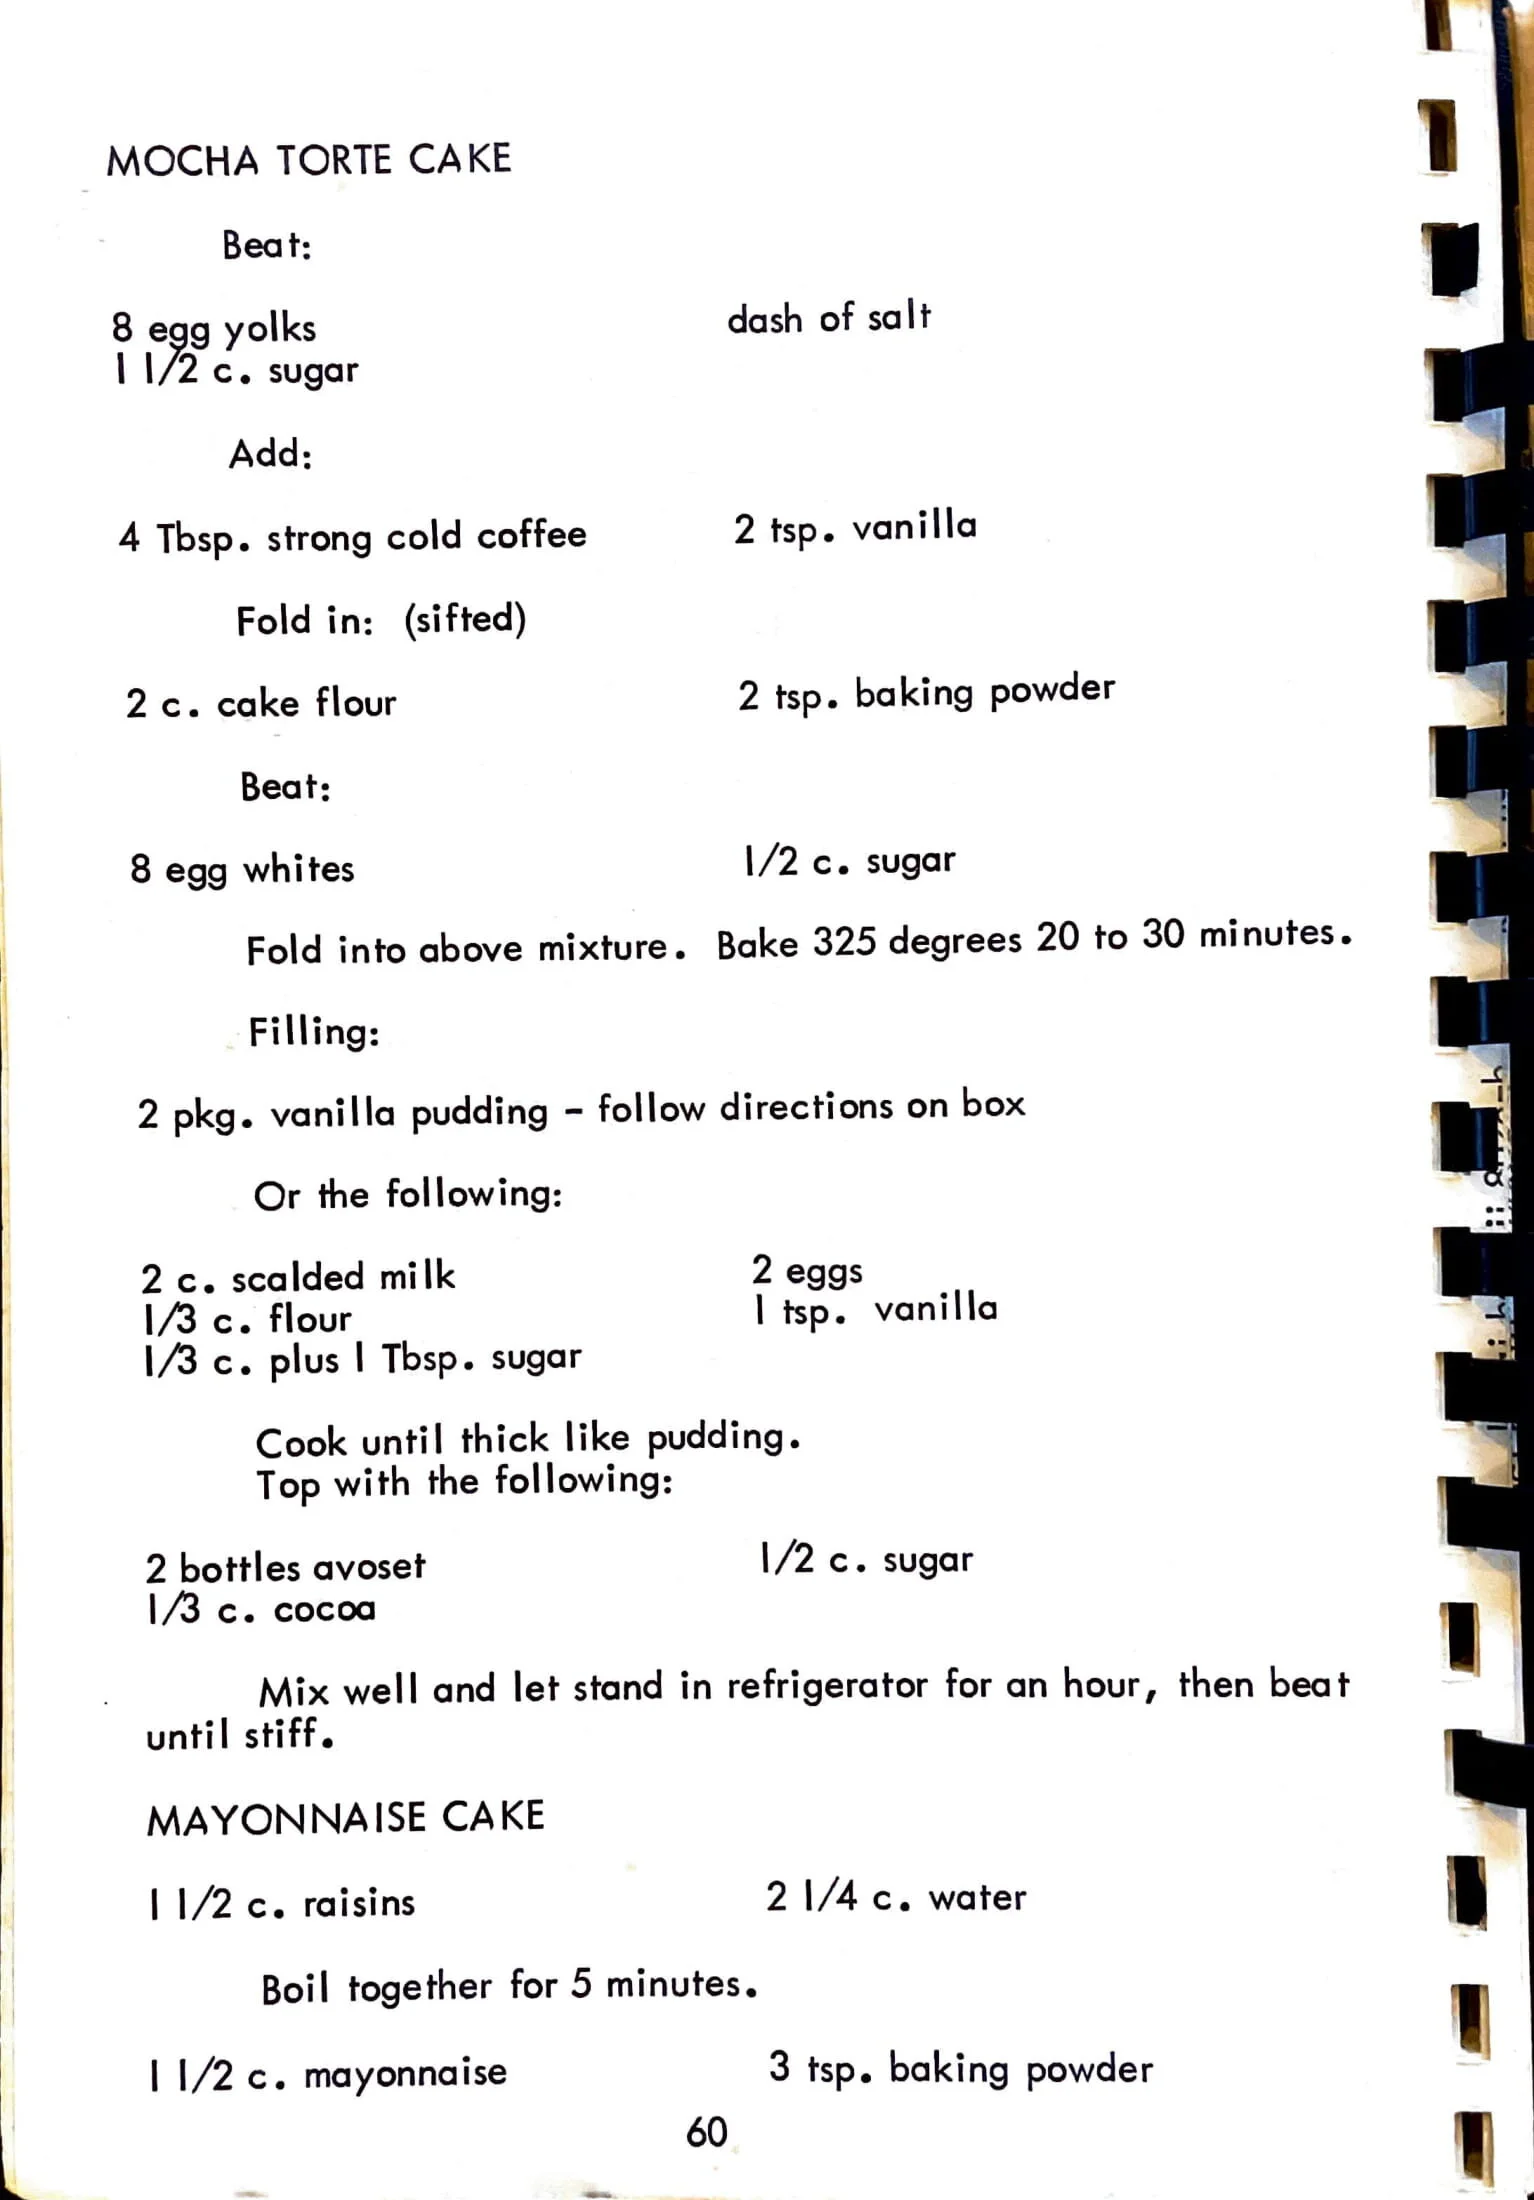 MOCHA TORTE CAKE
Beat:
8 egg yolks dash of salt
1 1/2 c. sugar
Add:
4 Tbsp. strong cold coffee 2 tsp. vanilla
Fold in: (sifted)
2 c. cake flour 2 tsp. baking powder
Beat:
8 egg whites 1/2 c. sugar
Fold into above mixture. Bake 325 degrees 20 to 30 minutes.
Filling:
2 pkg. vanilla pudding - follow directions on box
Or the following:
2 c. scalded milk 2 eggs
1/3 c. flour 1 tsp. vanilla
1/3 c. plus 1 Tbsp. sugar
Cook until thick like pudding.
Top with the following:
2 bottles avoset 1/2 c. sugar
1/3 c. cocoa
Mix well and let stand in refrigerator for an hour, then beat
until stiff.
MAYONNAISE CAKE
1 1/2 c. raisins 2 1/4 c. water
Boil together for 5 minutes.
1 1/2 c. mayonnaise 3 tsp. baking powder
60